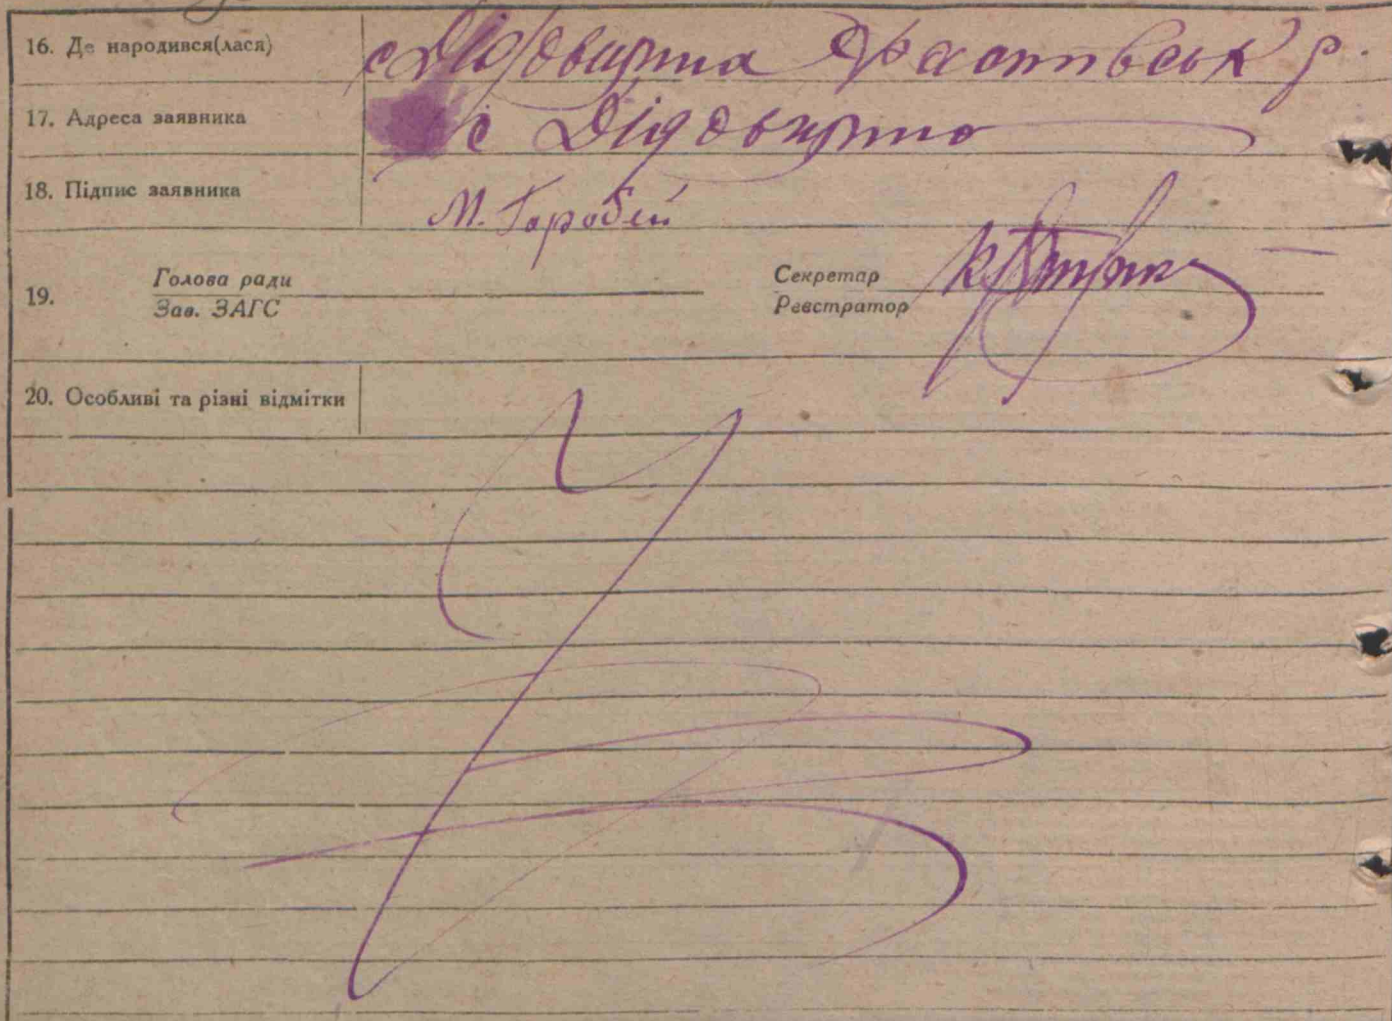 16. Де народився(лася) с Дідовщина Фастівськ р.
17. Адреса заявника с Дідовщина
18. Підпис заявника М. Горобей
19. Голова ради Секретар
Зав. ЗАГС Реєстратор
20. Особливі та різні відмітки